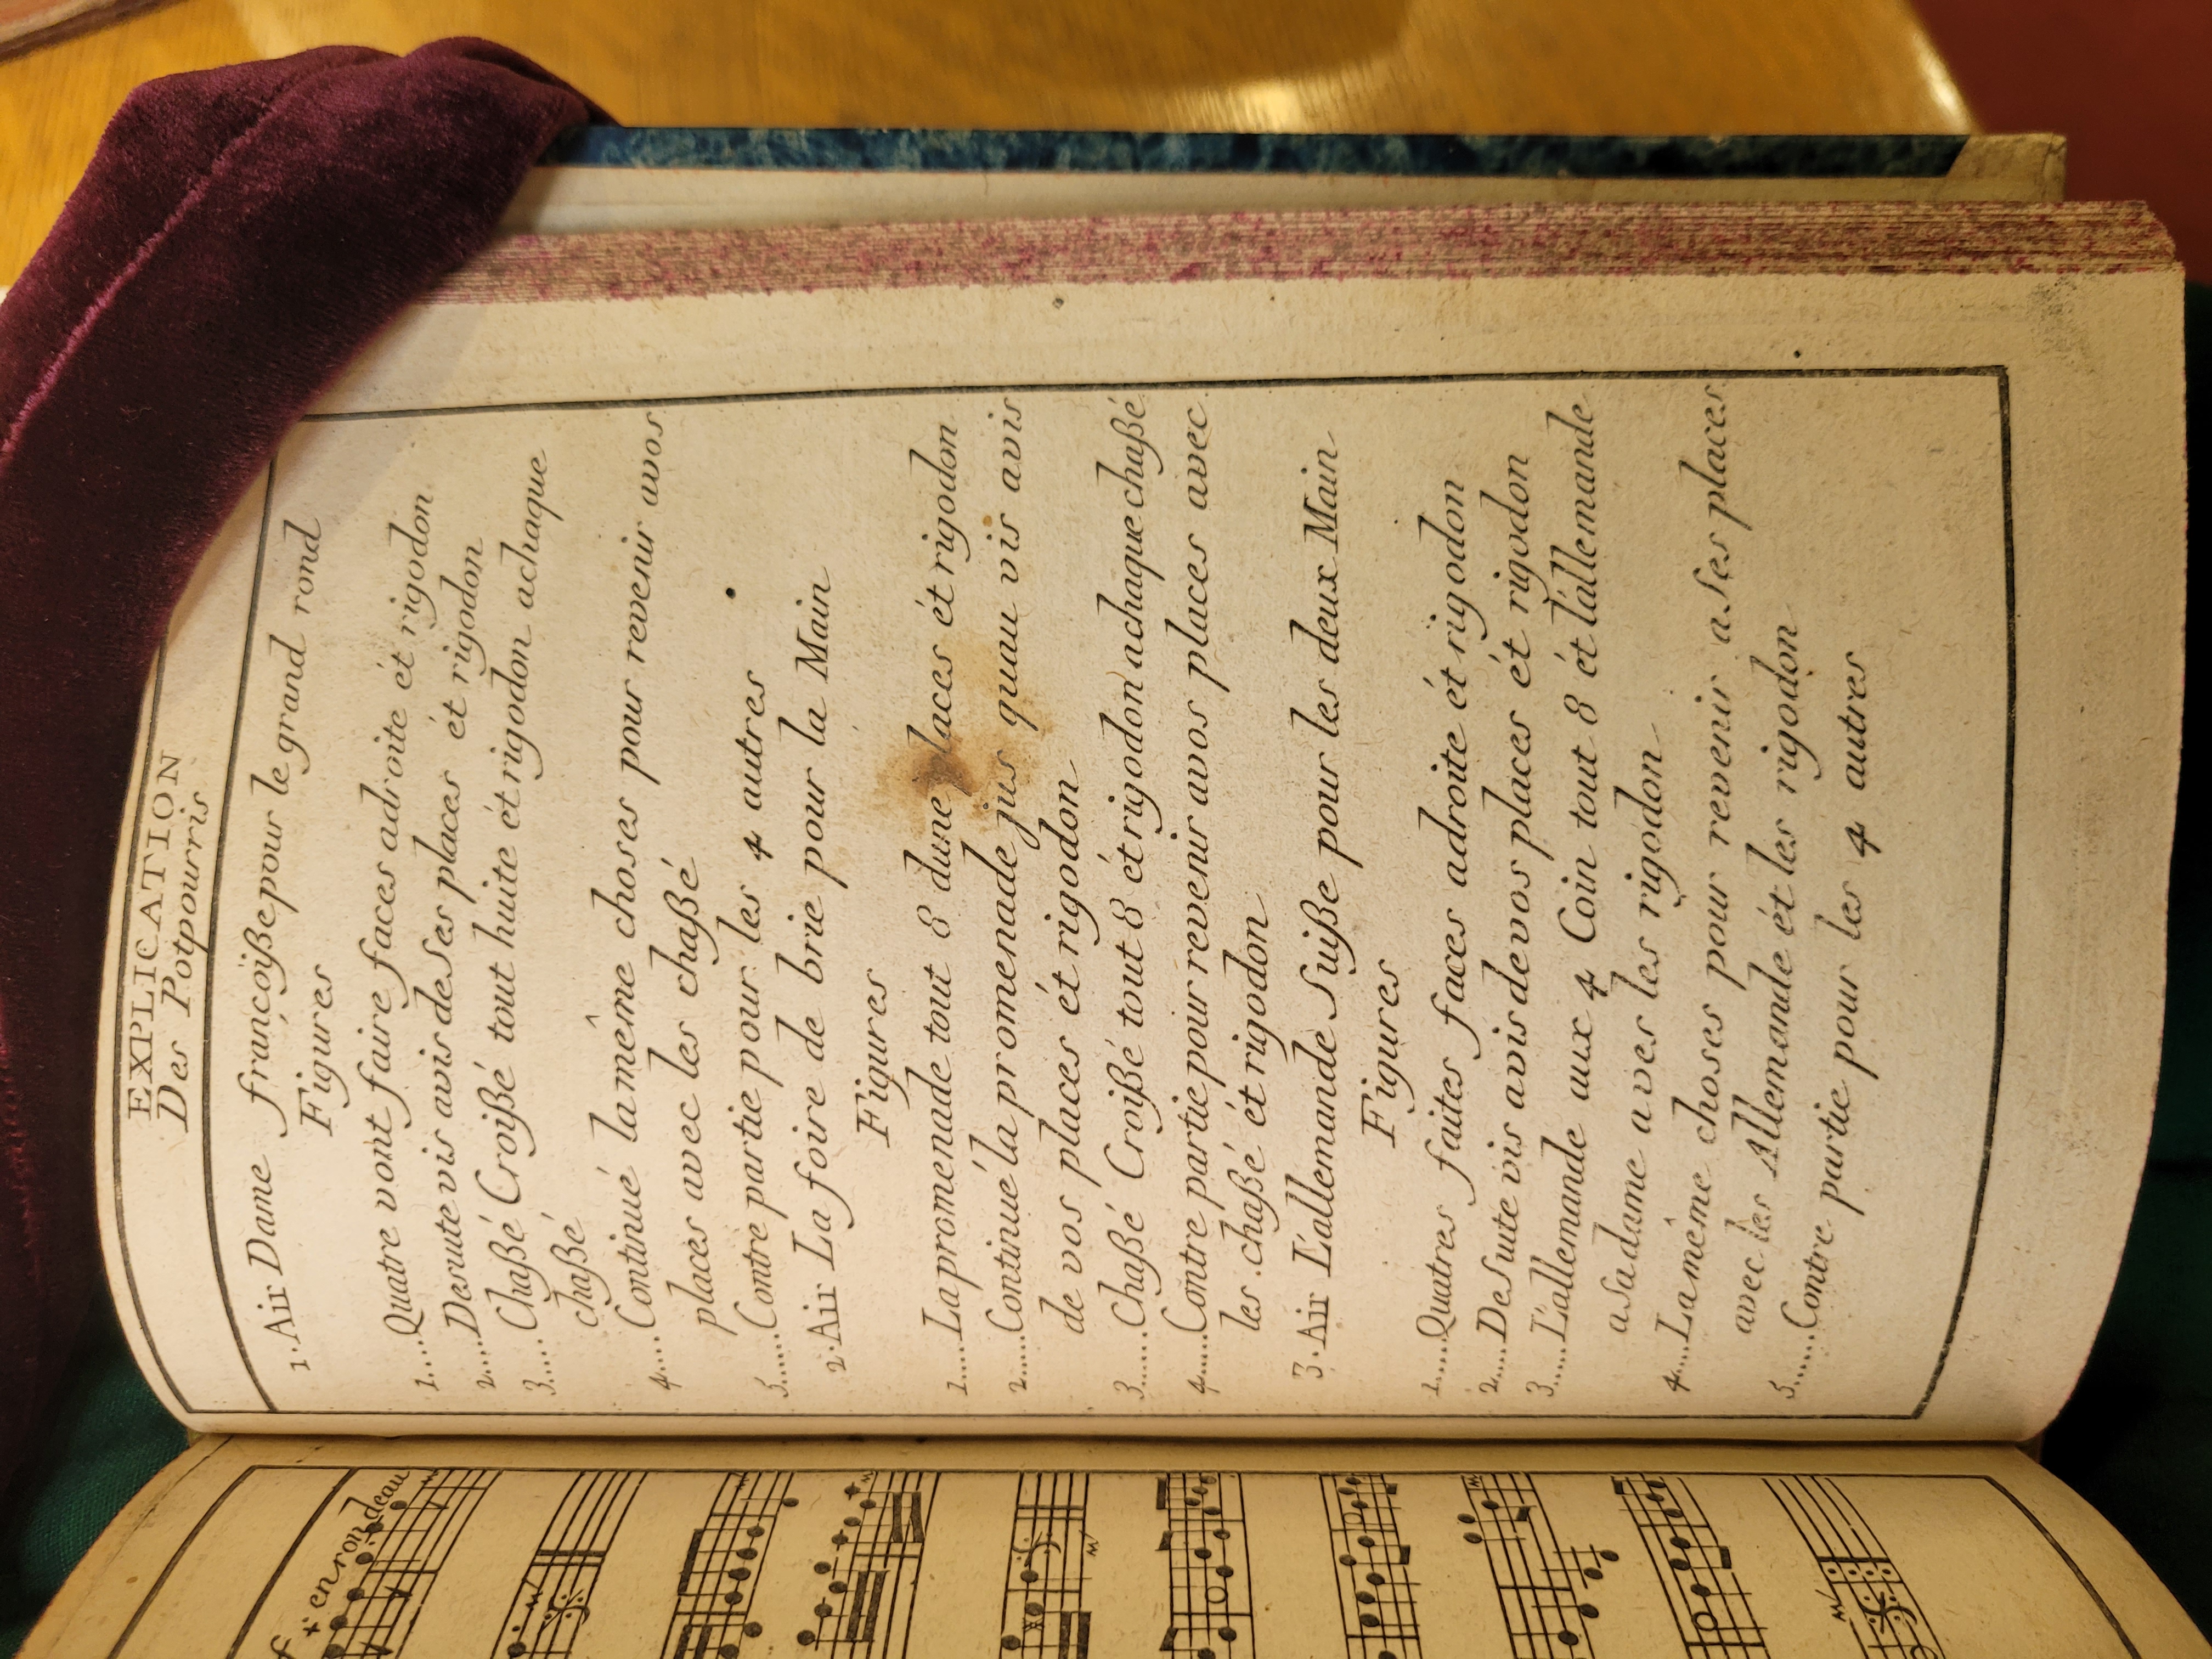 EXPLICATION
Des Potpourris
1. Air Dame françoiße pour le grand rond
Figures
1....Quatre vont faire faces adroite ét rigodon
2....Desuute vis avis deses places ét rigodon
3....Chaßé Croißé tout huite ét rigodon achaque
chaßé
4....Continué la même choses pour revenir avos
places avec les chaßé
5.....Contre partie pour les 4 autres
2. Air La foire de brie pour la Main
Figures
1.....La promenade tout 8 dune places ét rigodon
2.....Continué la promenade jus quau vis avis
de vos places ét rigodon
3......Chaßé Croißé tout 8 ét rigodon achaque chaßé
4.....Contre partie pour revenir avos places avec
les chaßé ét rigodon
3. Air L'allemande Suiße pour les deux Main
Figures
1.....Quatres faites faces adroite ét rigodon
2....De Suite vis avis de vos places ét rigodon
3.....L'allemande aux 4 Coin tout 8 ét l'allemande
asa dame aves les rigodon
4....La même choses pour revenir a ses places
avec les Allemande ét les rigodon
5......Contre partie pour les 4 autres
en rondeau